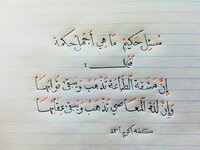 سئل حكيم ما هي أجمل حكمة
فقال :
إن مشقة الطاعة تذهب ويبقى ثوابها
وإن لذة المعاصي تذهب ويبقى عقابها
كتبه أكرم أحمد